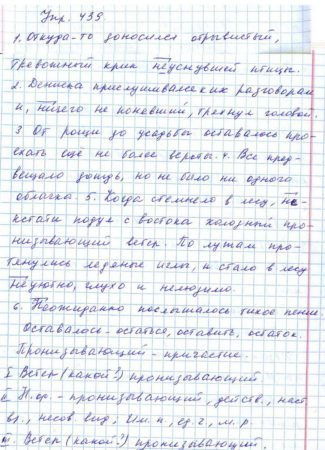 Упр. 439.
1. Откуда-то доносился отрывистый,
тревожный крик неуснувшей птицы.
2. Дениска прислушивался к их разговорам
и, ничего не понявший, тряхнул головой.
3. От рощи до усадьбы оставалось про-
ехать ещё не более версты. 4. Все пред-
вещало дождь, но не было ни одного
облачка. 5. Когда стемнело в лесу, не-
кстати подул с востока холодный про-
низывающий ветер. По лужам про-
тянулись ледяные иглы, и стало в лесу
неуютно, глухо и нелюдимо.
6. Неожиданно послышалось тихое пение.
Оставалось - остаться, оставить, остаток.
Пронизывающий - причастие.
I Ветер (какой?) пронизывающий
II Н.ф. - пронизывающий, действ., наст.
вр., несов. вид, Им. п., ед. ч., м. р.
III Ветер (какой?) пронизывающий.